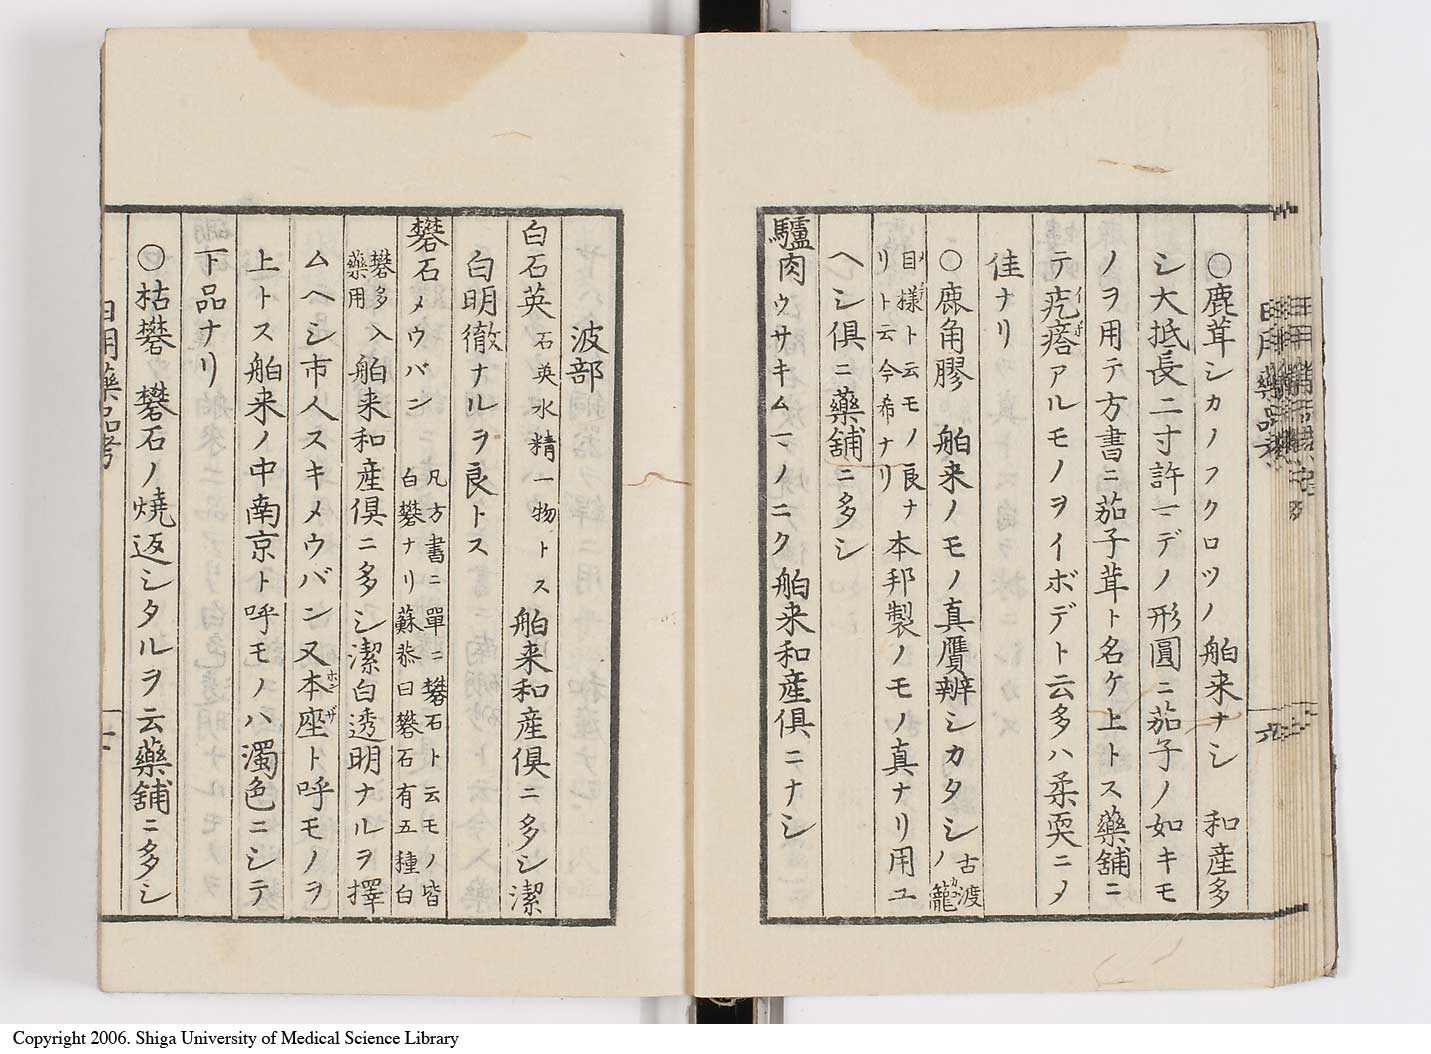 ○鹿茸シカノフクロツノ舶来ナシ 和産多
シ大抵長二寸許ニテノ形圓ニ茄子ノ如キモ
ノヲ用テ方書ニ茄子茸ト名ケ上トス藥舖ニ
テ疙瘩アルモノヲイボデト云多ハ柔耎ニメ
佳ナリ
○鹿角膠 舶来ノモノ真贋辨シカタシ古渡ノ籠
目様ト云モノ良ナリト云今希ナリ 本邦製ノモノ真ナリ用ユ
ヘシ倶ニ藥舖ニ多シ
驢肉ウサキムマノニク舶来和産倶ニナシ
日用藥品考
六
波部
白石英 石英水精一物トス 舶来和産倶ニ多シ潔
白明徹ナルヲ良トス
礬石メウバン 凡方書ニ單ニ礬石ト云モノ皆白礬ナリ蘇恭曰礬石有五種白
礬多入藥用 舶来和産倶ニ多シ潔白透明ナルヲ擇
ムヘシ市人スキメウバン又本座ト呼モノヲ
上トス舶来ノ中南京ト呼モノハ濁色ニシテ
下品ナリ
○枯礬 礬石ノ燒返シタルヲ云藥舖ニ多シ
日用藥品考
Copyright 2006. Shiga University of Medical Science Library